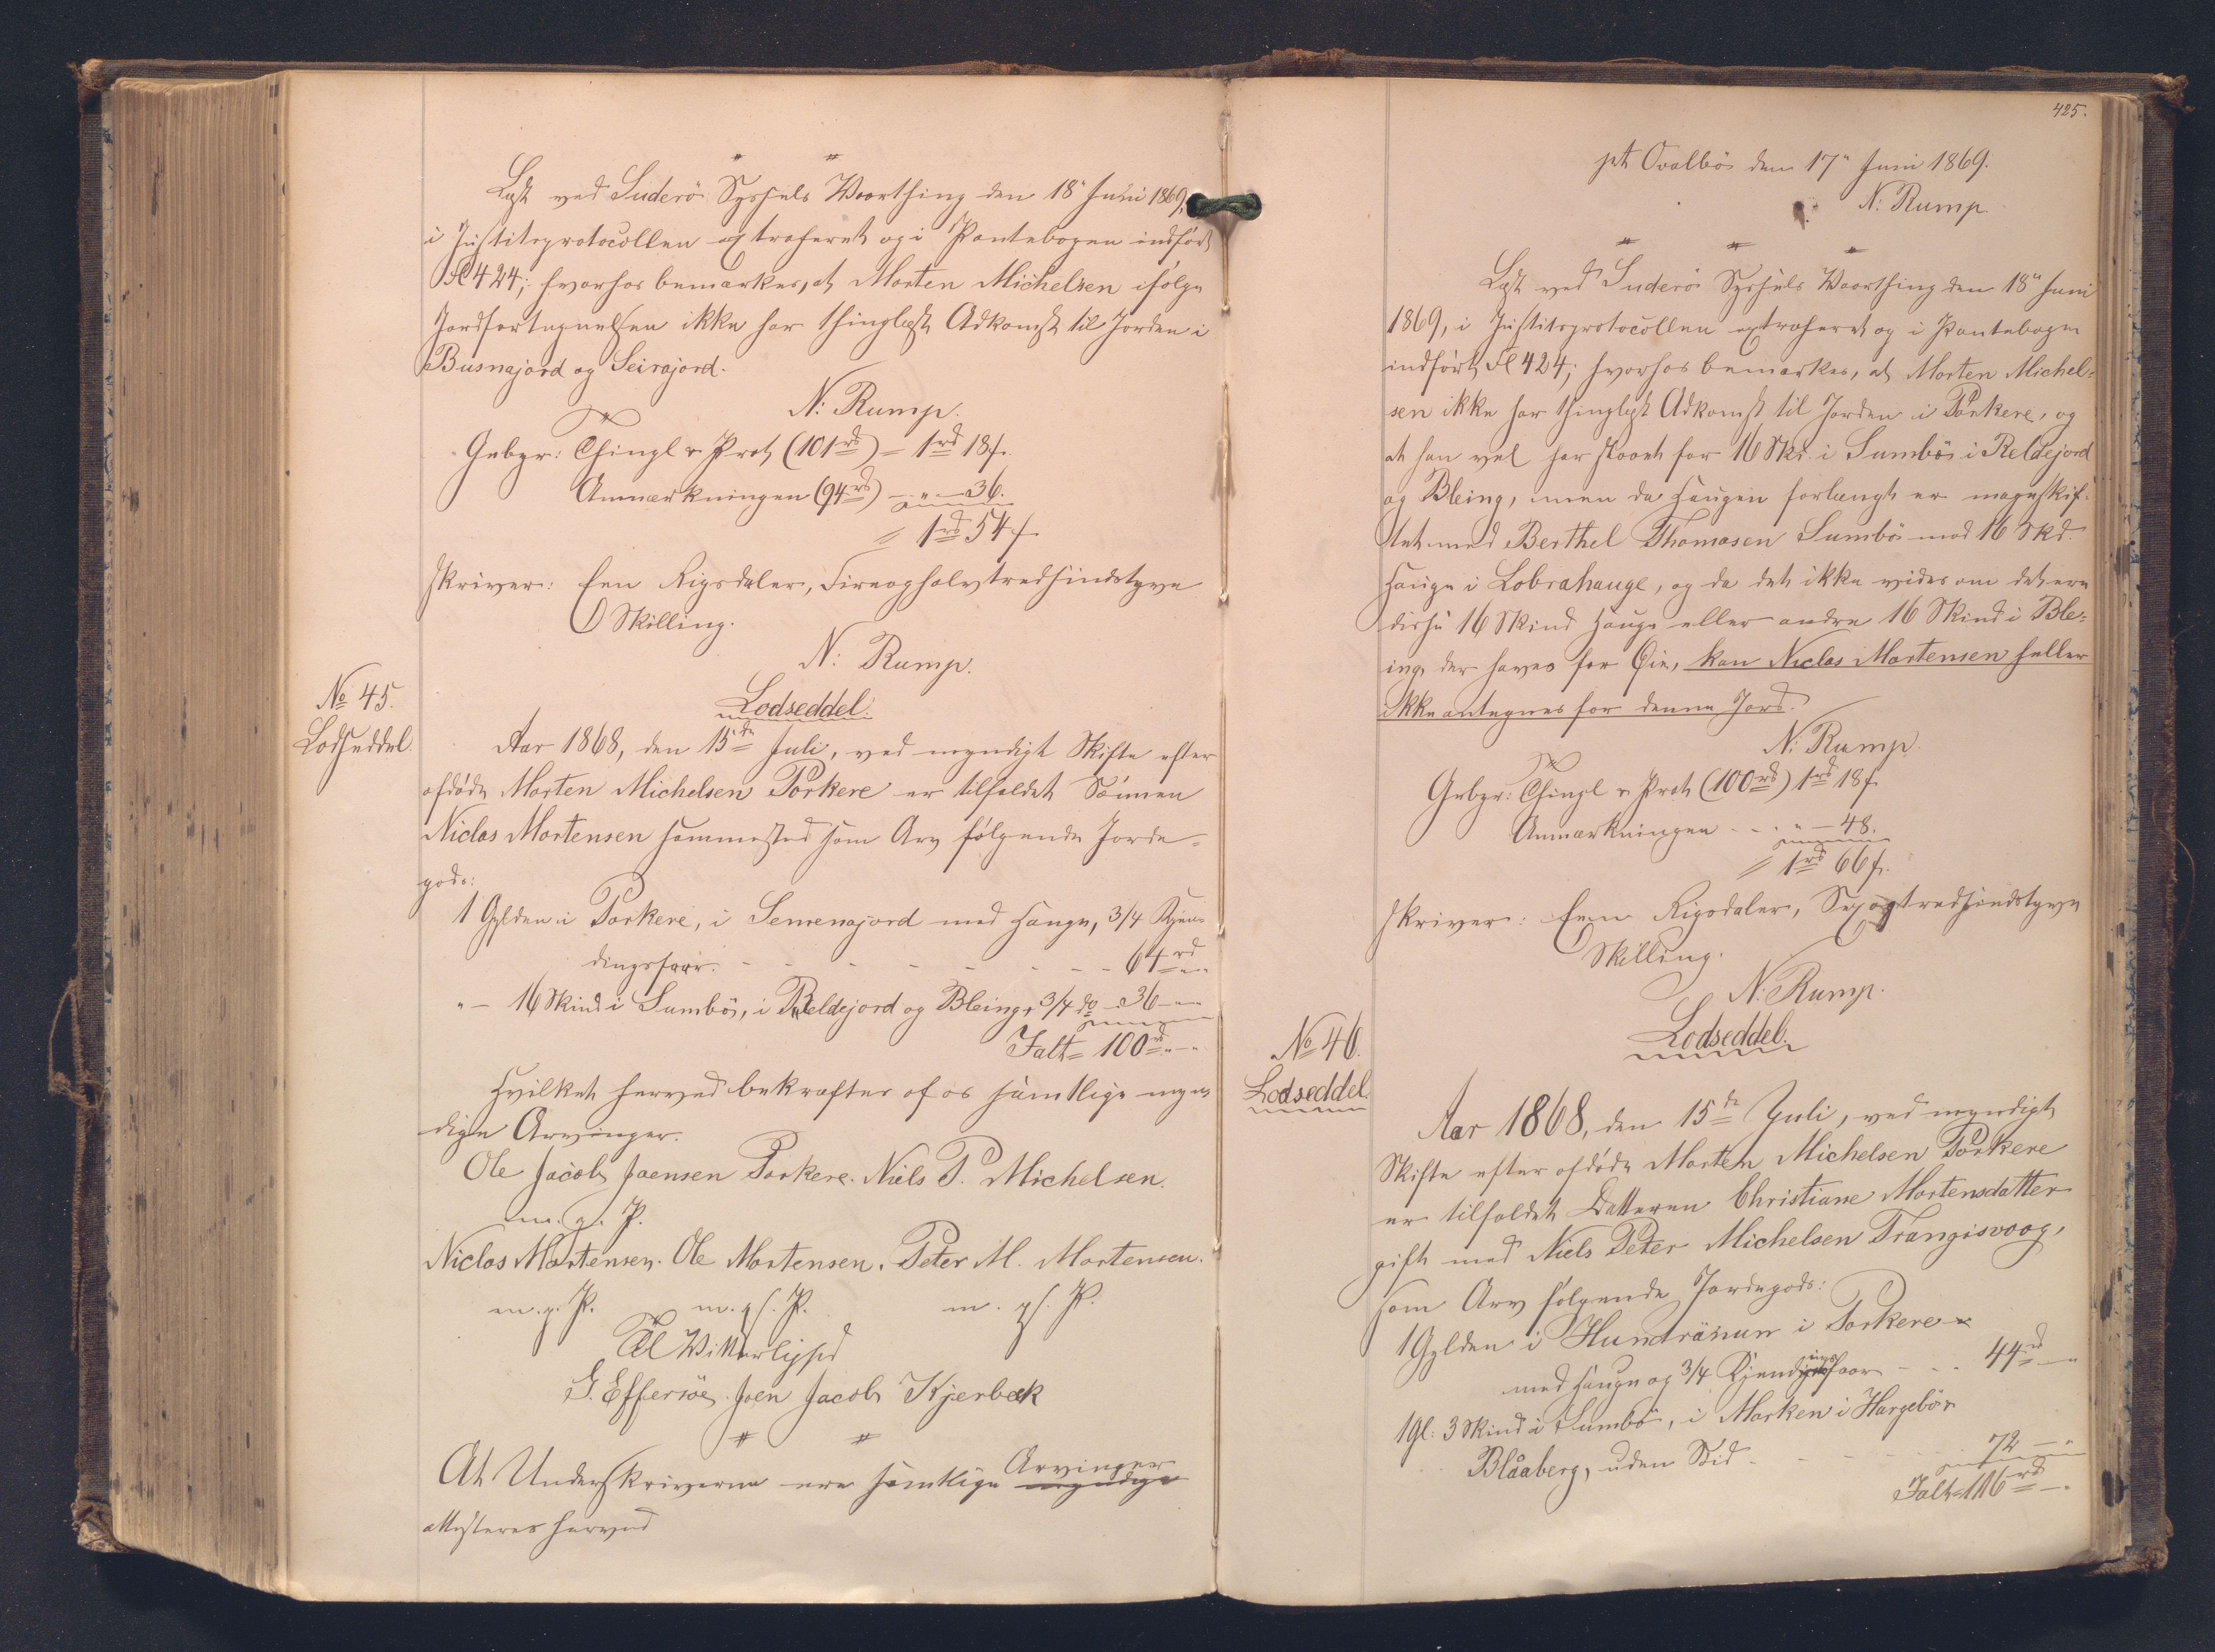 Læst ved Suderö Syssels Vaarthing den 18' Juni 1869,
i Justitsprotocollen extraheret og i Pantebogen indført
Fl 424; hvorhos bemærkes, at Morten Michelsen ifølge
Jordfortegnelsen ikke har thinglæst Adkomst til Jorden i
Busnajord og Seirajord.
N: Rump.
Gebyr: Thingl & Prot (101rd) = 1rd 18f.
Anmærkningen (94rd) - " - 36.
= 1rd 54f
skriver: Een Rigsdaler, Fireoghalvtredsindstyve
Skilling.
N: Rump.
No 45.
Lodseddel.
Lodseddel.
Aar 1868, den 15de Juli, ved myndigt Skifte efter
afdøde Morten Michelsen Porkere er tilfaldet Sönnen
Niclas Mortensen sammested som Arv følgende Jorde-
gods:
1 Gylden i Porkere, i Semenajord med Hauge, 3/4 Kjen-
dingsfaar. - - - - - - - 64rd " "
" - 16 Skind i Sumbö, i Reldejord og Bleing, 3/4 do - 36 - " "
Ialt = 100rd " - "
Hvilket herved bekræftes af os samtlige myn-
dige Arvinger.
Ole Jacob Joensen Porkere. Niels P. Michelsen.
m. p. P.
Niclas Mortensen. Ole Mortensen. Peter M. Mortensen.
m. p. P. m. p. P. m. p. P.
Til Vitterlighed
G. Effersöe. Joen Jacob Kjerbæk
At Underskriverne ere samtlige myndige Arvinger
attesteres herved
425.
pt. Qvalbö den 17" Juni 1869.
N: Rump.
Læst ved Suderö Syssels Vaarthing den 18" Juni
1869, i Justitsprotocollen extraheret og i Pantebogen
indført Fl 424; hvorhos bemærkes, at Morten Michel-
sen ikke har thinglæst Adkomst til Jorden i Porkere, og
at han vel har staaet for 16 Skd. i Sumbö i Reldejord
og Bleing, men da Haugen forlængst er mageskif-
tet med Berthel Thomasen Sumbö mod 16 Skd.
Hauge i Lobrahauge, og da det ikke vides om det ere
disse 16 Skind Hauge eller andre 16 Skind i Ble-
ing, der haves for Øie, kan Niclas Mortensen heller
ikke antegnes for denne Jord.
N: Rump.
Gebyr: Thingl & Prot (100rd) 1rd 18f.
Anmærkningen - - " - 48.
= 1rd 66f.
skriver: Een Rigsdaler, Sex og tredsindstyve
Skilling.
N: Rump.
No 46.
Lodseddel.
Lodseddel.
Aar 1868, den 15de Juli, ved myndigt
Skifte efter afdøde Morten Michelsen Porkere
er tilfaldet Datteren Christiane Mortensdatter
gift med Niels Peter Michelsen Trangisvaag,
som Arv følgende Jordegods:
1 Gylden i Hundräsun i Porkere
med Hauge og 3/4 Kjendingsfaar - - - 44rd - "
1 Gl: 3 Skind i Sumbö, i Marken i Hargebö &
Blåaberg, uden Bid - - - - - 72 - "
Ialt = 116rd - "